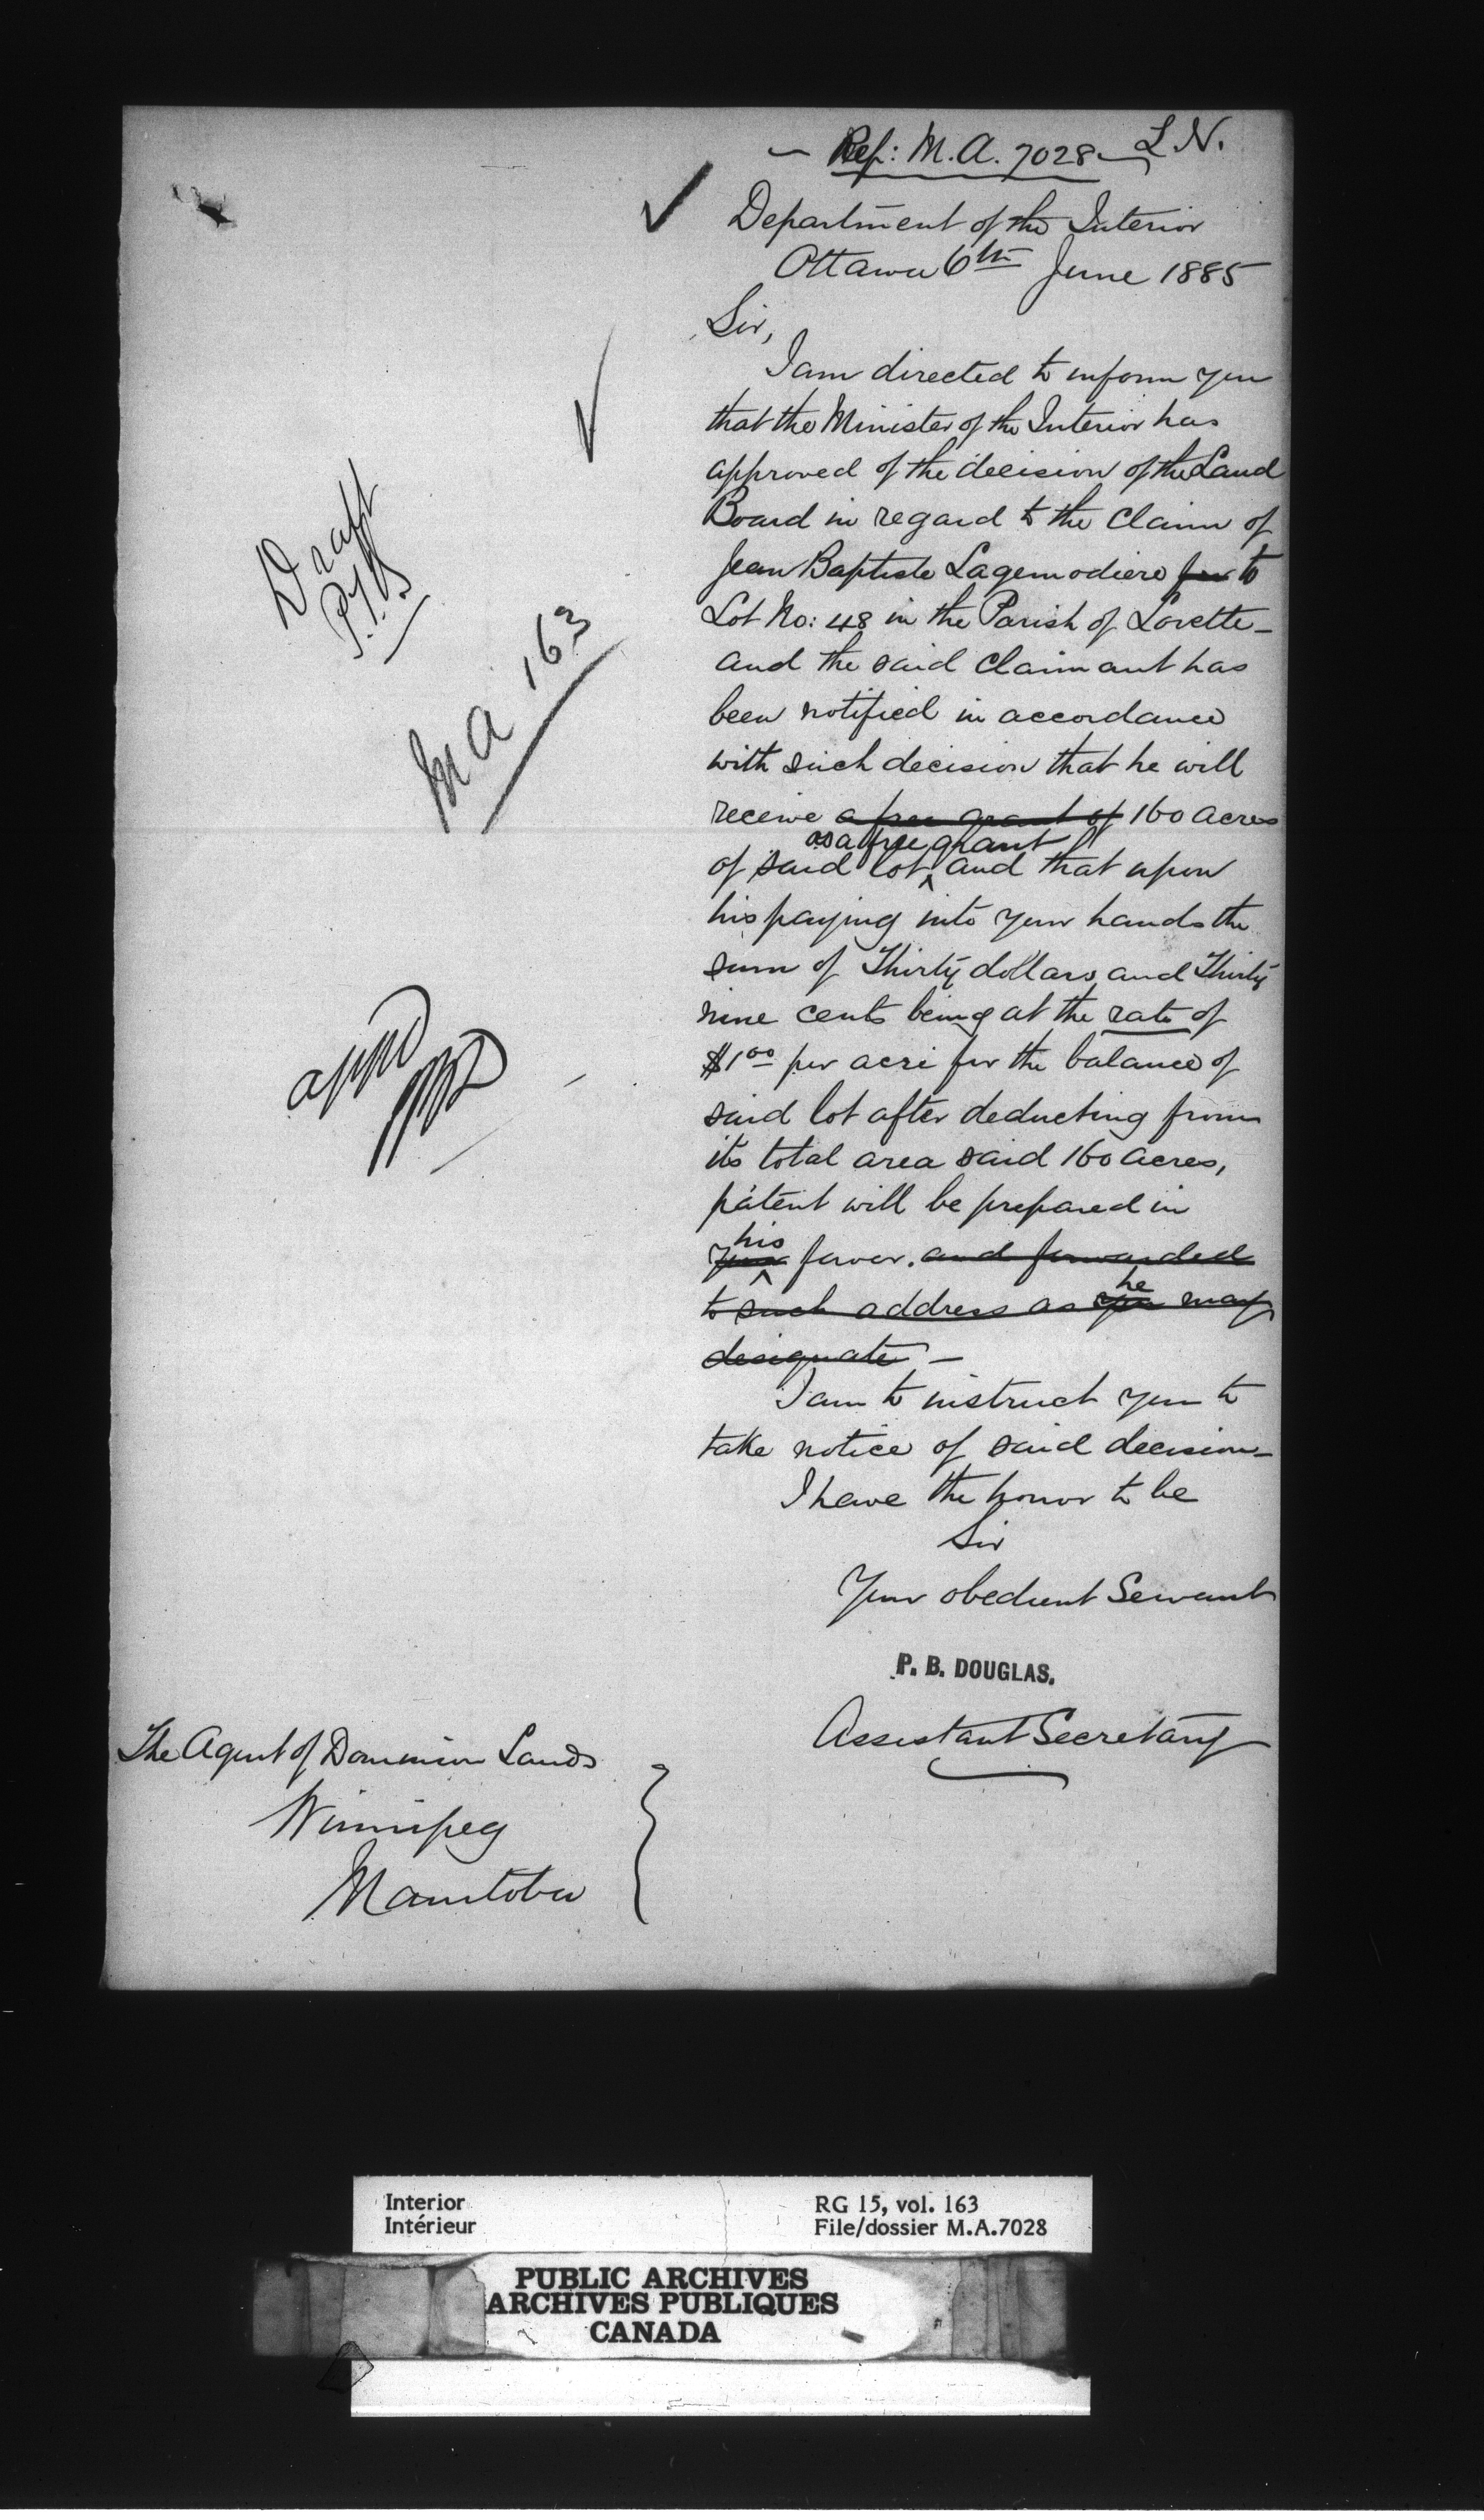 Ref: M.A. 7028 L.N.
Department of the Interior
Ottawa 6th June 1885
Sir,
I am directed to inform you
that the Minister of the Interior has
approved of the decision of the Land
Board in regard to the claim of
Jean Baptiste Lagemodiere for to
Lot No: 48 in the Parish of Lorette -
and the said claimant has
been notified in accordance
with such decision that he will
receive a free grant of 160 acres
as a free grant
of said lot ^ and that upon
his paying into your hands the
sum of Thirty dollars and Thirty
nine cents being at the rate of
$1.00 per acre for the balance of
said lot after deducting from
its total area said 160 acres,
patent will be prepared in
his
your favor. and forwarded
he
to such address as you may
designate -
I am to instruct you to
take notice of said decision -
I have the honor to be
Sir
Your obedient Servant
P. B. DOUGLAS.
Assistant Secretary
Draft
M A 163
appd
The Agent of Dominion Lands
Winnipeg
Manitoba
Interior
Intérieur
RG 15, vol. 163
File/dossier M.A.7028
PUBLIC ARCHIVES
ARCHIVES PUBLIQUES
CANADA